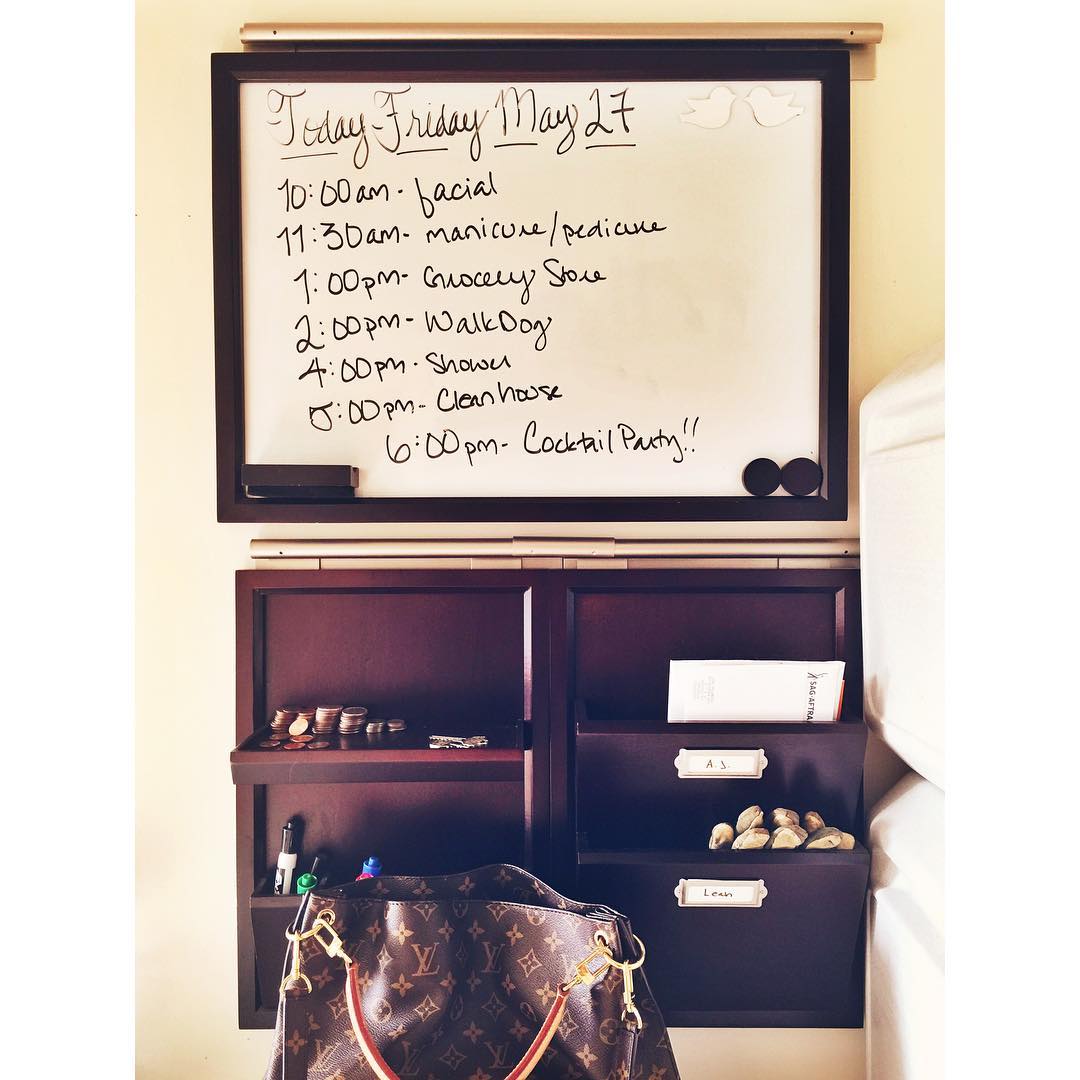 Today Friday May 27
10:00am - facial
11:30am - manicure/pedicure
1:00pm - Grocery Store
2:00pm - Walk Dog
4:00pm - Shower
5:00pm - Clean house
6:00pm - Cocktail Party!!
SAG-AFTRA
A.J.
Leah
LV